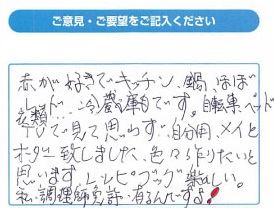 ご意見・ご要望をご記入ください
赤が好きでキッチン、鍋、ほぼ
衣類… 冷蔵庫もです。自転車、ベッド
TVで見て思わず、自分用、メイと
オーダー致しました、色々作りたいと
思います レシピブック楽しい。
私、調理師免許、有るんですよ!